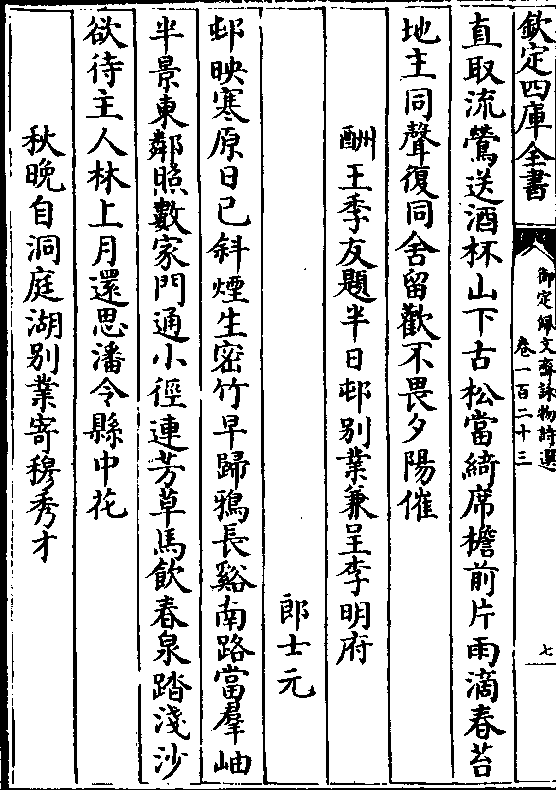 欽定四庫全書
御定佩文齋詠物詩選
卷一百二十三
七
直取流鶯送酒杯山下古松當綺席檐前片雨滴春苔
地主同聲復同舍留歡不畏夕陽催
酬王季友題半日邨别業兼呈李明府
郎士元
邨映寒原日已斜煙生密竹早歸鴉長谿南路當羣岫
半景東鄰照數家門通小徑連芳草馬飲春泉踏淺沙
欲待主人林上月還思潘令縣中花
秋晚自洞庭湖别業寄穆秀才